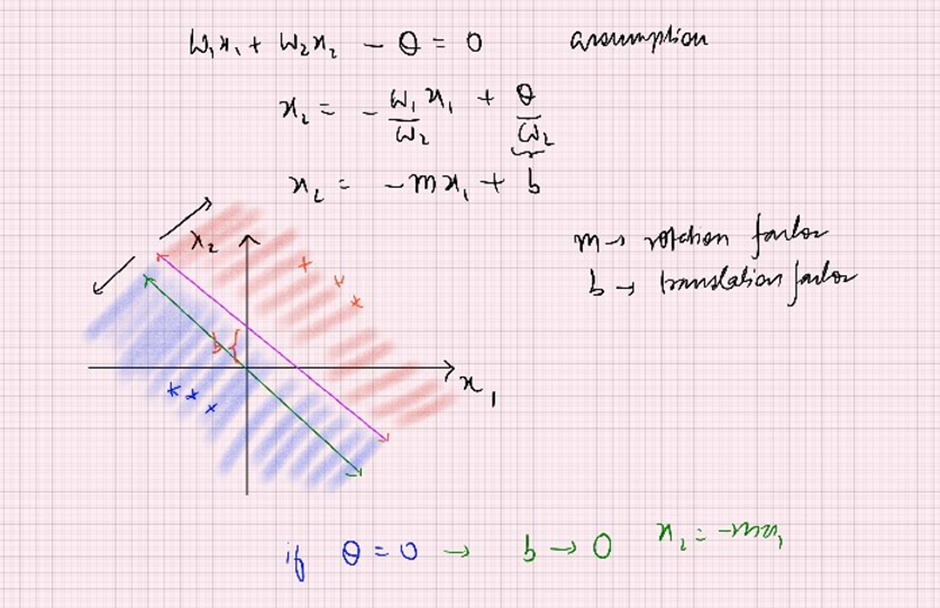 w₁x₁ + w₂x₂ - θ = 0 assumption
x₂ = - w₁/w₂ x₁ + θ/w₂
x₂ = -mx₁ + b
m → rotation factor
b → translation factor
x₂
b
x₁
if θ = 0 → b → 0 x₂ = -mx₁